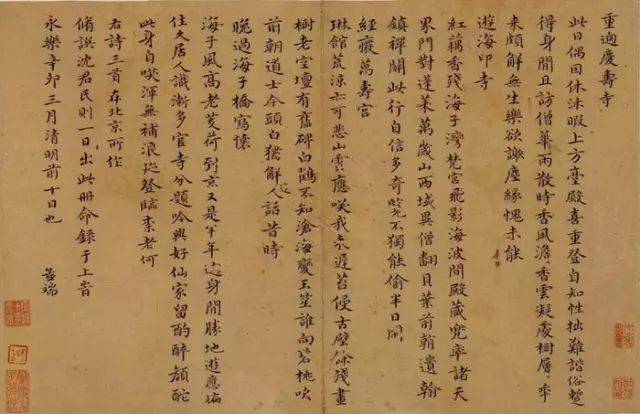 重過慶壽寺
此日偶因休沐暇上方臺殿喜重登自知性拙難諧俗暫
得身閒且訪僧華雨散時香風澹香雲凝處樹層〻年
來頗解無生樂欲謝塵緣愧未能
遊海印寺
紅藕香殘海子灣梵宮飛影海波間殿藏兜率諸天
界門對蓬萊萬歲山西域異僧翻貝葉前朝遺翰
鎮禪關此行自信多奇覽不獨能偷半日閒
經廢萬壽宮
琳館荒凉亦可悲山靈應咲我來遲苔侵古壁餘殘畫
樹老空壇有舊碑白鶴不知滄海變玉笙誰向碧桃吹
前朝道士今頭白猶解逢人話昔時
晚過海子橋寫懷
海子風高老芰荷到京又是半年過身閒勝地遊應遍
住久居人識漸多官寺分題吟興好仙家留酌醉顏酡
此身自咲渾無補浪跡登臨柰老何
右詩三首在北京所作
脩譔沈君民則一日出此冊命錄于上時
永樂辛卯三月清明前十日也
孟端